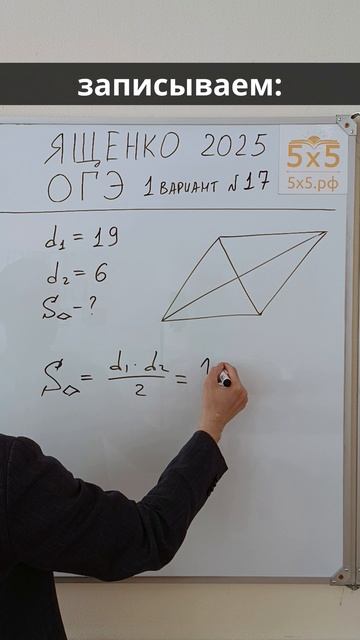 записываем:
ЯЩЕНКО 2025
ОГЭ 1 ВАРИАНТ №17
5х5
5х5.рф
d₁ = 19
d₂ = 6
S▱ - ?
S▱ = d₁ · d₂ / 2 = 1